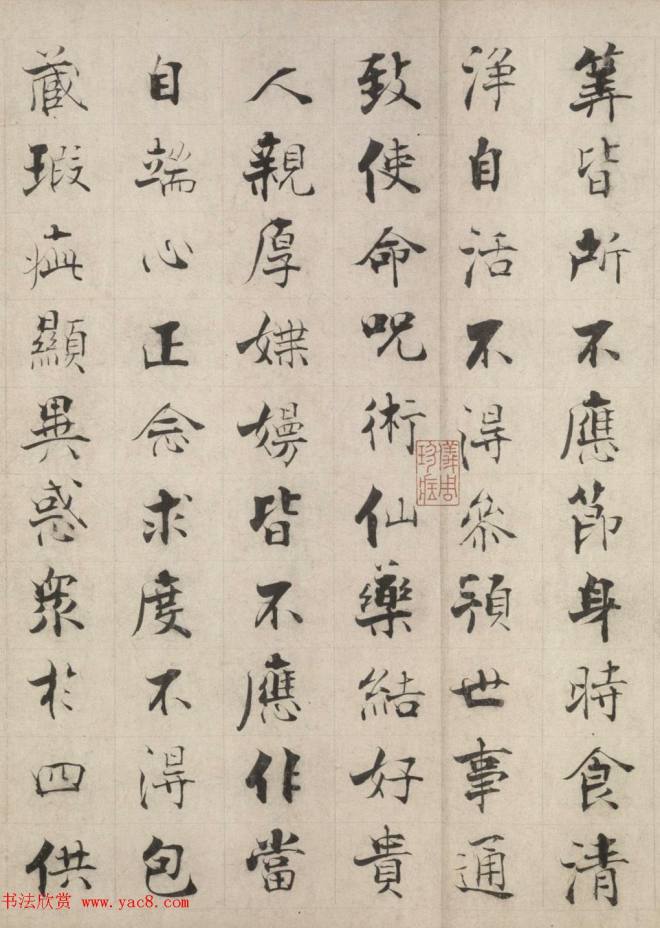 筭皆所不應節身時食清
淨自活不得參預世事通
致使命呪術仙藥結好貴
人親厚媟嫚皆不應作當
自端心正念求度不得包
藏瑕疵顯異惑衆於四供
儀周珍藏
书法欣赏 www.yac8.com